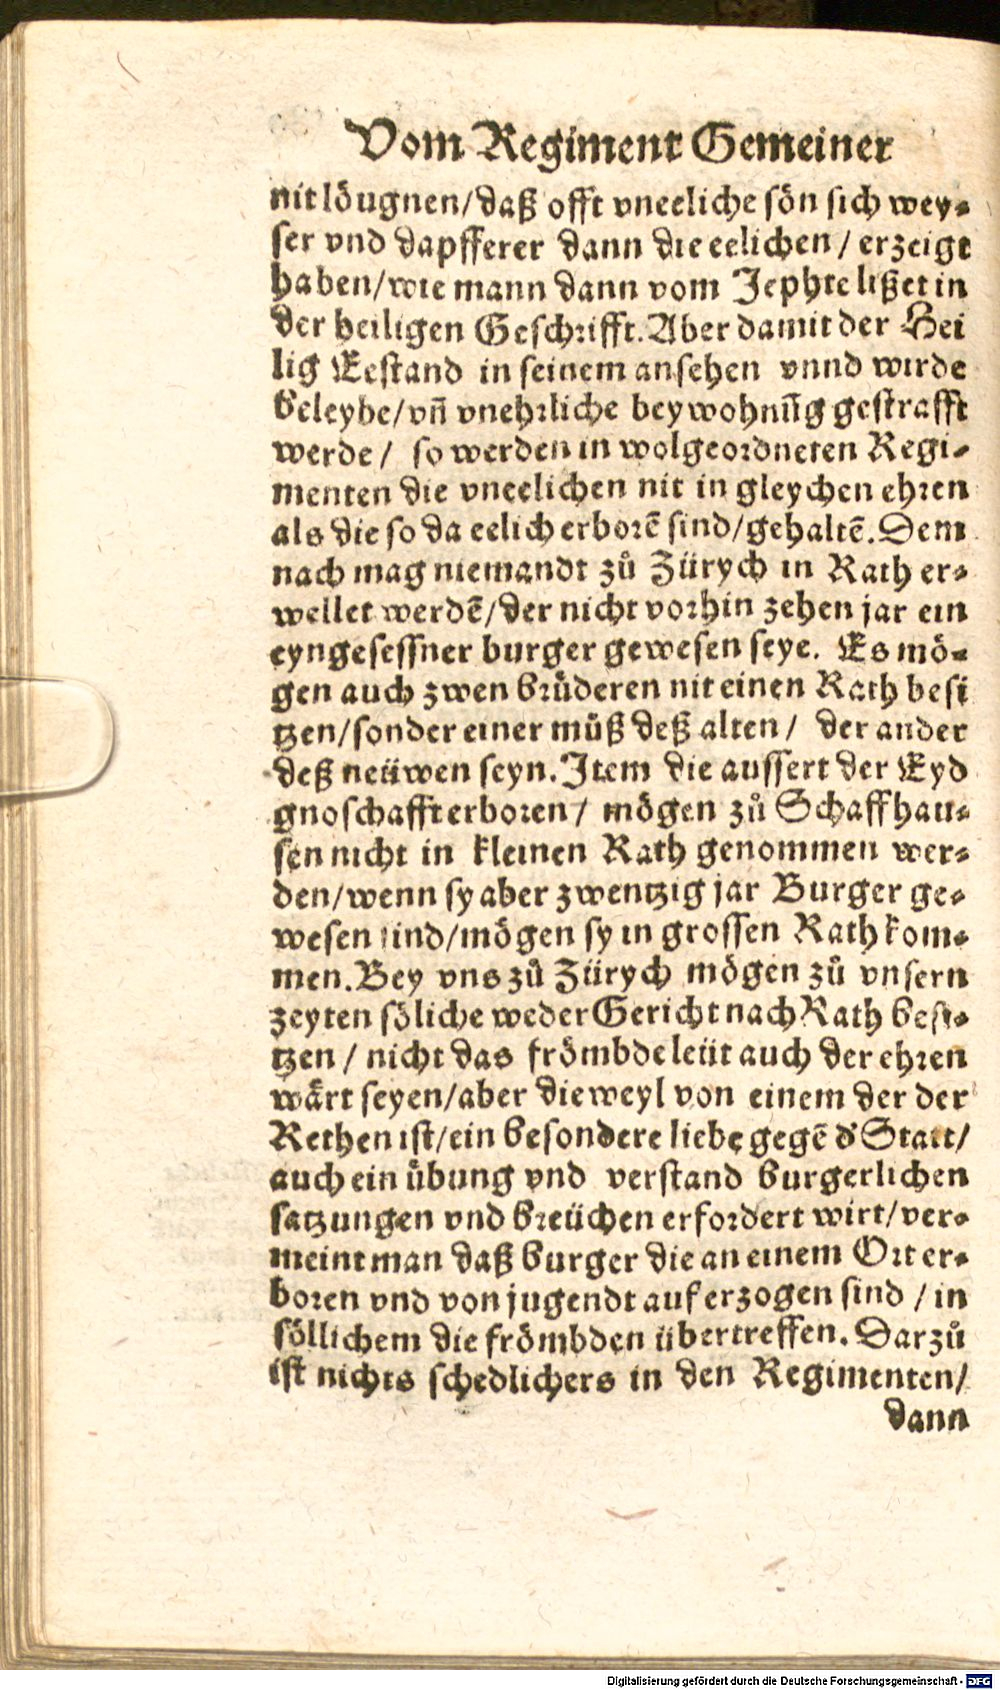 Vom Regiment Gemeiner
nit löugnen/daß offt vneeliche sön sich wey-
ser vnd dapfferer dann die eelichen / erzeigt
haben/wie mann dann vom Jephte lißet in
der heiligen Geschrifft. Aber damit der Hei
lig Eestand in seinem ansehen vnnd wirde
beleybe/vñ vnehrliche beywohnūg gestrafft
werde / so werden in wolgeordneten Regi-
menten die vneelichen nit in gleychen ehren
als die so da eelich erborē sind/gehaltē. Dem
nach mag niemandt zů Zürych in Rath er-
wellet werdē/der nicht vorhin zehen jar ein
eyngesessner burger gewesen seye. Es mö-
gen auch zwen brüderen nit einen Rath besi
tzen/sonder einer müß deß alten / der ander
deß neüwen seyn. Item die aussert der Eyd
gnoschafft erboren / mögen zů Schaffhau-
sen nicht in kleinen Rath genommen wer-
den/wenn sy aber zwentzig jar Burger ge-
wesen sind/mögen sy in grossen Rath kom-
men. Bey vns zů Zürych mögen zů vnsern
zeyten söliche weder Gericht nach Rath besi-
tzen / nicht das frömbde leüt auch der ehren
wärt seyen/aber dieweyl von einem der der
Rethen ist/ein besondere liebe gegē d' Statt/
auch ein übung vnd verstand burgerlichen
satzungen vnd breüchen erfordert wirt/ver-
meint man daß burger die an einem Ort er-
boren vnd von jugendt auf erzogen sind / in
söllichem die frömbden übertreffen. Darzů
ist nichts schedlichers in den Regimenten/
dann
Digitalisierung gefördert durch die Deutsche Forschungsgemeinschaft - DFG